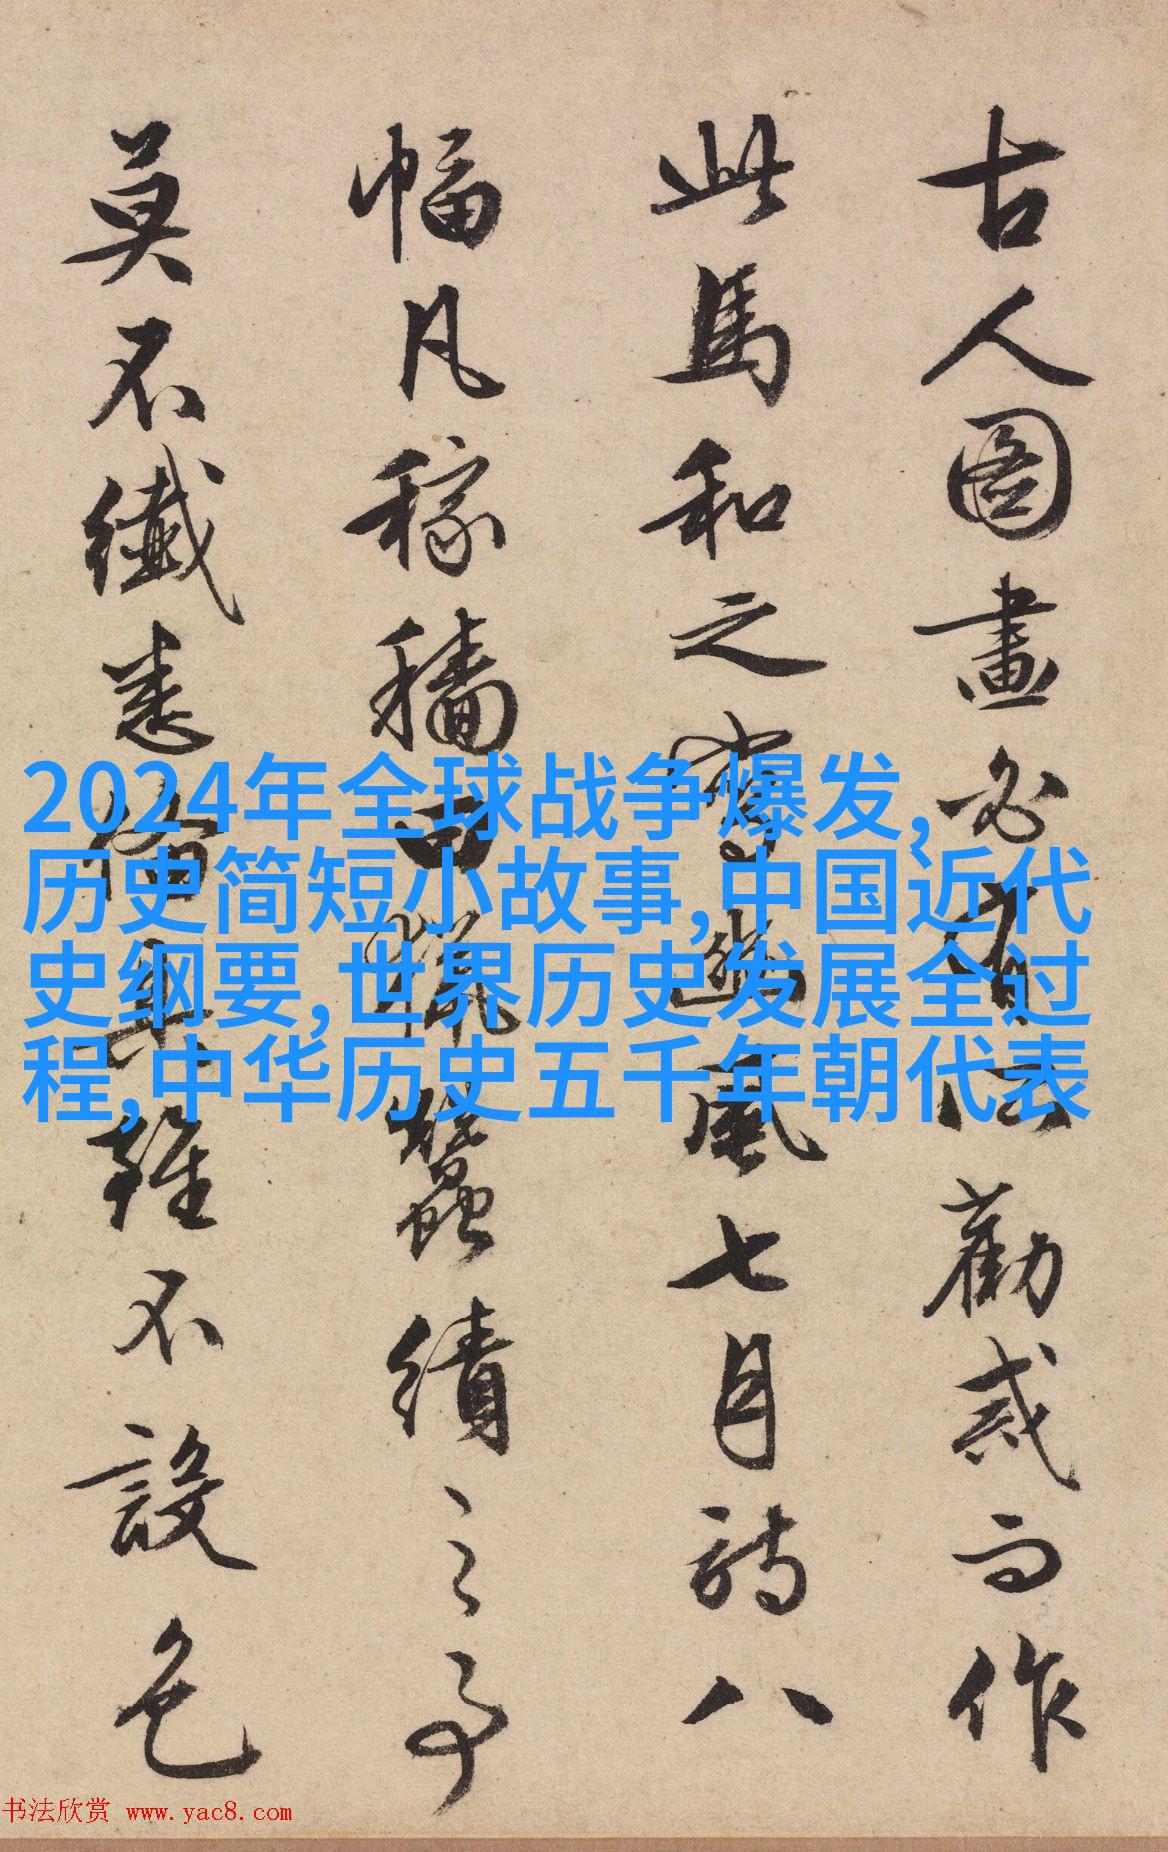 古人圖畫必有勸戒而作
此馬和之豳風七月詩八
幅凡稼穡田獵蠶績之事
莫不纖悉備具雖不設色
2024年全球战争爆发,
历史简短小故事,中国近代
史纲要,世界历史发展全过
程,中华历史五千年朝代表
书法欣赏 www.yac8.com